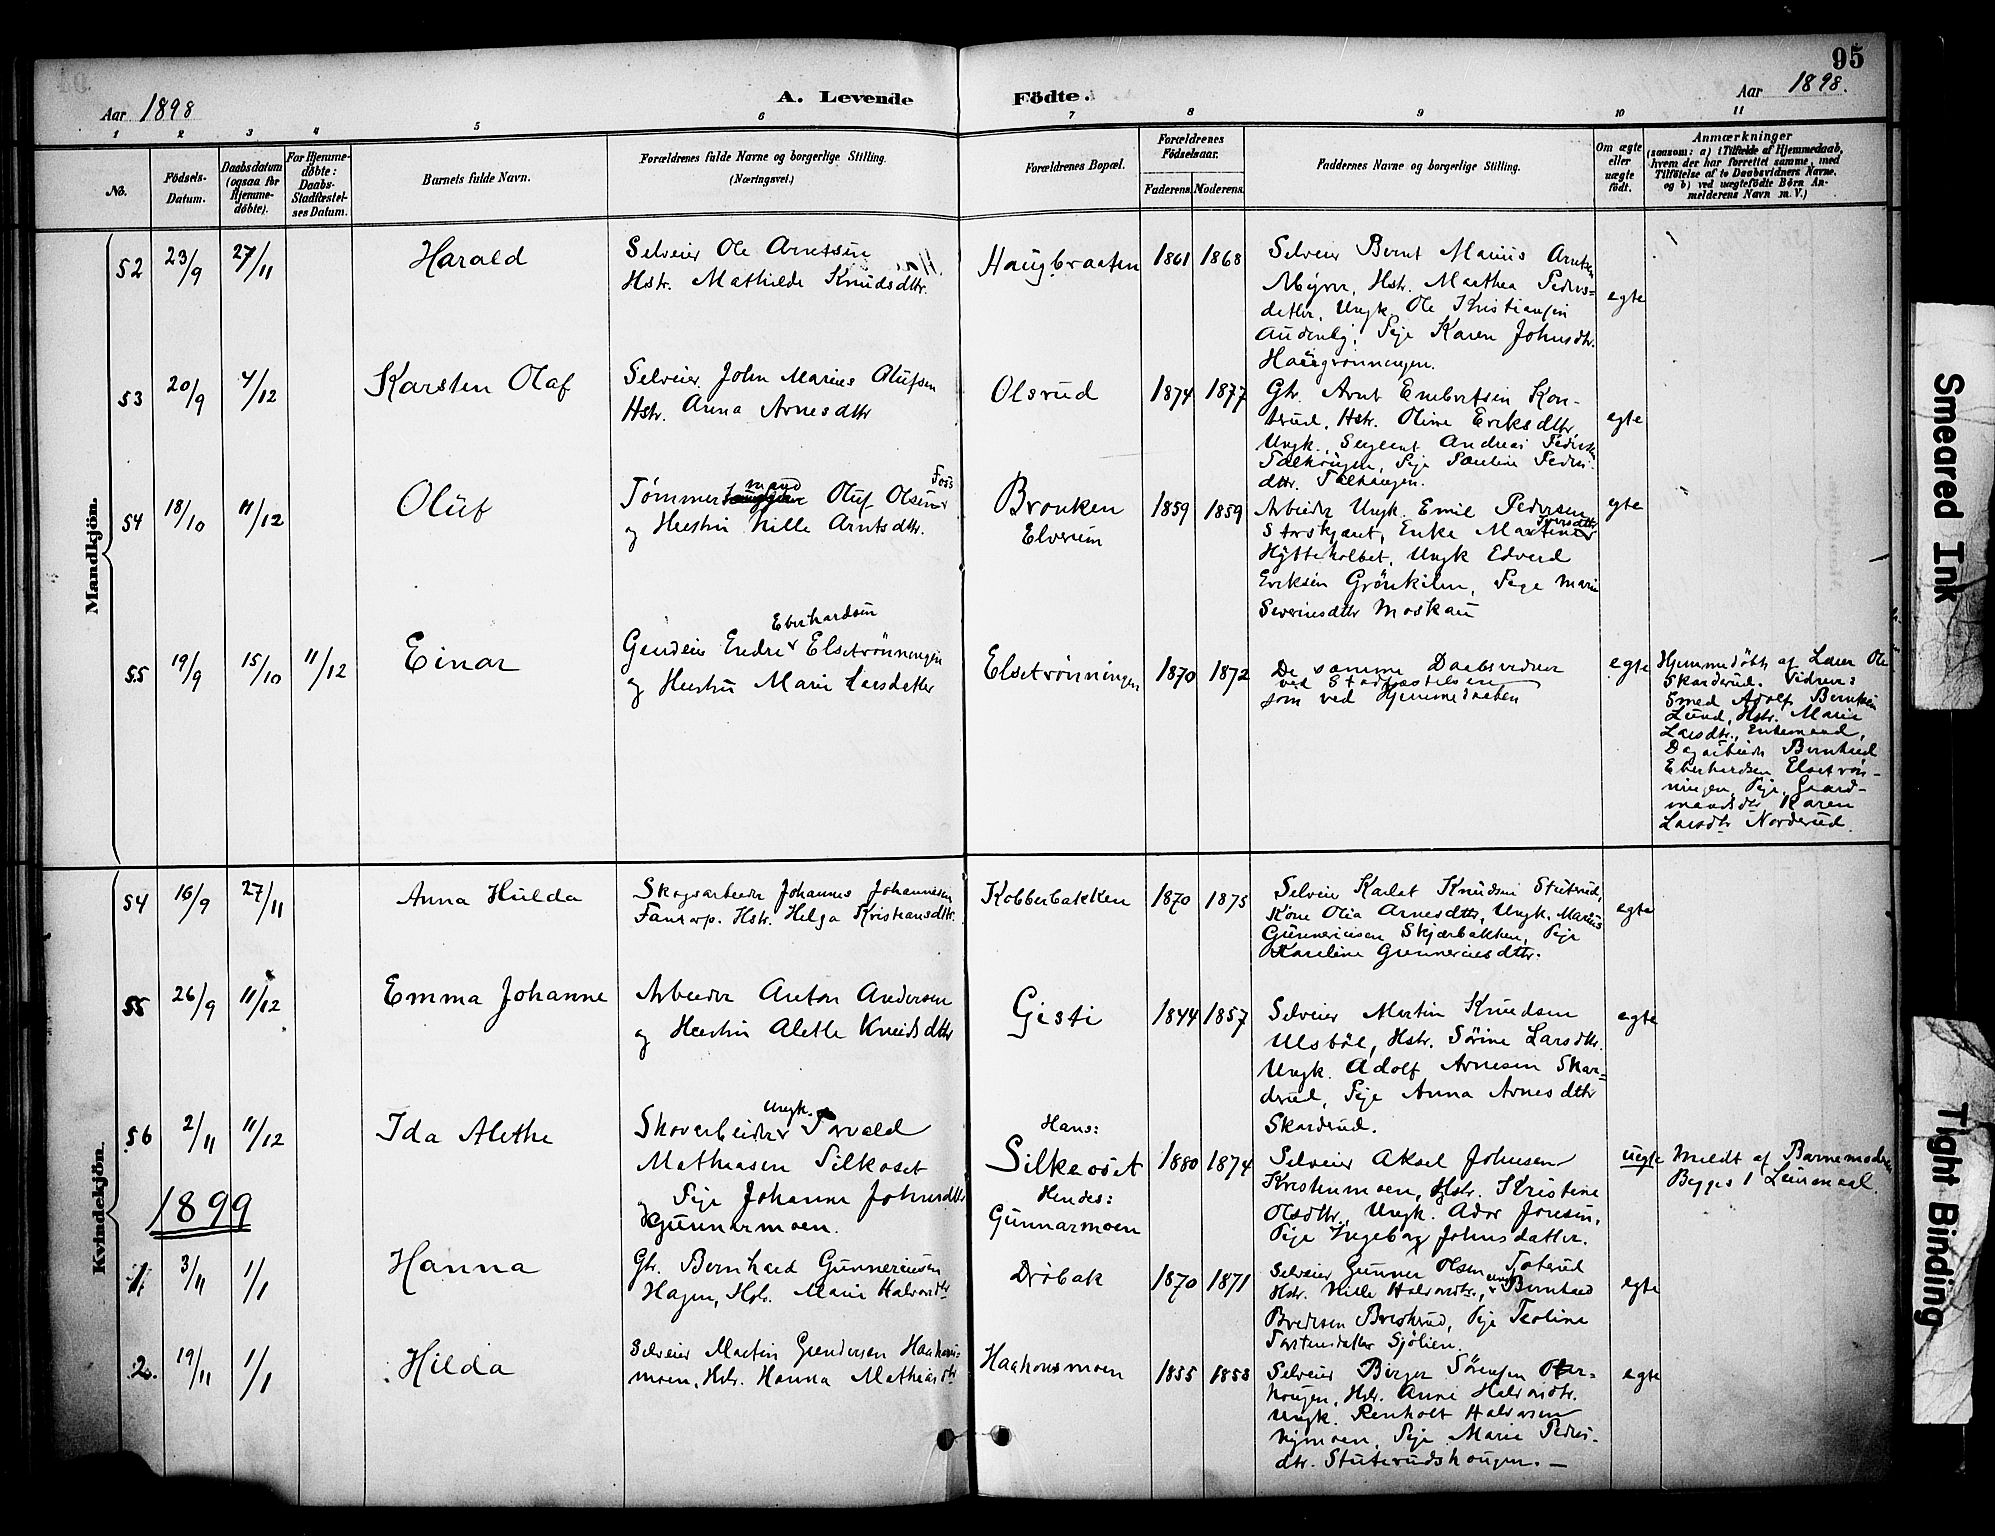 95
Aar 1898
A. Levende Födte.
Aar 1898.
1 2 3 4 5 6 7 8 9 10 11
No.
Födsels-Datum.
Daabsdatum (ogsaa for Hjemme-döbte).
For Hjemme-döbte: Daabs-Stadfæstel-ses Datum.
Barnets fulde Navn.
Forældrenes fulde Navne og borgerlige Stilling. (Næringsvei.)
Forældrenes Bopæl.
Forældrenes Födselsaar.
Faderens. Moderens.
Faddernes Navne og borgerlige Stilling.
Om ægte eller uægte födt.
Anmærkninger
(saasom: a) i Tilfælde af Hjemmedaab,
hvem der har forrettet samme, med
Tilföielse af to Daabsvidners Navne,
og b) ved uægtefödte Börn An-
melderens Navn m. V.)
Mandkjön.
52 23/9 27/11 Harald
Selveier Ole Arntsen
Hstr. Mathilde Knudsdttr.
Haugbraaten 1861 1868
Selveier Bernt Marius Arntsen
Myrer, Hstr. Marthea Peders=
detter, Ungk. Ole Kristiansen
Pige Karen Johnsdtr.
egte
53 20/9 4/12 Karsten Olaf
Selveier John Marius Olufsen
Hstr. Anna Arnesdttr
Olsrud 1874 1877
Gbr. Arnt Embretsen Kon-
trud, Hstr. Oline Eriksdttr,
Ungk. Sergeant Andreas Pedersen
Pige Pauline Peders
dttr.
egte
54 18/10 11/12 Oluf
Tømmermand Oluf Olsen Foss
og Hustru Nille Arntsdttr.
Bronken
Elverum
1859 1859
Arbeider Ungk. Emil Pedersen
Storskjæret, Enke Martine Iversdttr
Hytteholbet, Ungk Edvard
Eriksen Grönkilen, Pige Marie
Severinesdttr Moskau
egte
55 19/9 15/10 11/12 Einar
Eberhardsen
Gaardeier Endre Elsetrönningen
og Hustru Marie Larsdatter
Elsetrönningen 1870 1872
De samme Daabsvidner
ved Stadfæstelsen
som ved Hjemmedaaben
egte
Hjemmedøbt af Lærer Ole
Skarderud. Vidner:
Smed Adolf Berntsen
Lund, Hstr. Marie
Larsdtr., Enkemand,
Dagarbeider Bernhard
Eberhardsen Elsetrön-
ningen, Pige, Gaard-
mandsdtr Karen
Larsdtr Norderud.
Kvindekjön.
54 16/9 27/11 Anna Hulda
Skogsarbeider Johannes Johannesen
Hstr. Helga Kristiansdttr.
Kobberbakken 1870 1875
Selveier Karlat Knudsen Stuterud,
Kone Olia Arnesdttr, Ungk. Marius
Gunneriusen Skjærbakken, Pige
Karoline Gunneriusdttr.
egte
55 26/9 11/12 Emma Johanne
Arbeider Anton Andersen
og Hustru Alette Knudsdttr
Gisti 1844 1857
Selveier Martin Knudsen
Ulsböl, Hstr. Sörine Larsdttr.
Ungk. Adolf Arnesen Skar=
derud, Pige Anna Arnesdttr
Skarderud.
egte
56 2/11 11/12 Ida Alethe
Ungk.
Skovarbeider Torvald
Mathiasen Silkoset
og Pige Johanne Johnsdttr
Gunnarmoen.
Hans:
Silkeoset
Hendes:
Gunnarmoen
1880 1874
Selveier Aksel Johnsen
Kristinmoen, Hstr. Kristine
Olsdttr, Ungk. Ador Jonsen,
Pige Ingeborg Johnsdatter.
uegte
Meldt af Barnemoderen
Begges 1 Leiermaal.
1899
1. 3/11 1/1 Hanna
Gbr. Bernhard Gunneriusen
Hagen, Hstr. Marie Halvorsdtr
Dröbak 1870 1871
Selveier Gunner Olsen
Hstr. Nille Halvorsdtr., Ungk. Bernhard
Bredesen Breskerud, Pige Teoline
Torstensdatter Sjölien.
egte
2. 19/11 1/1 Hilda
Selveier Martin Gundersen Haakons-
moen, Hstr. Hanna Mathiasdtr
Haakonsmoen 1855 1853
Selveier Birger Sörensen
Hstr. Anne Halvorsdtr.
Ungk. Renholt Halvorsen
Nymoen, Pige Marie Peders-
dtr. Stuterudshougen. —
egte
Smeared Ink
Tight Binding